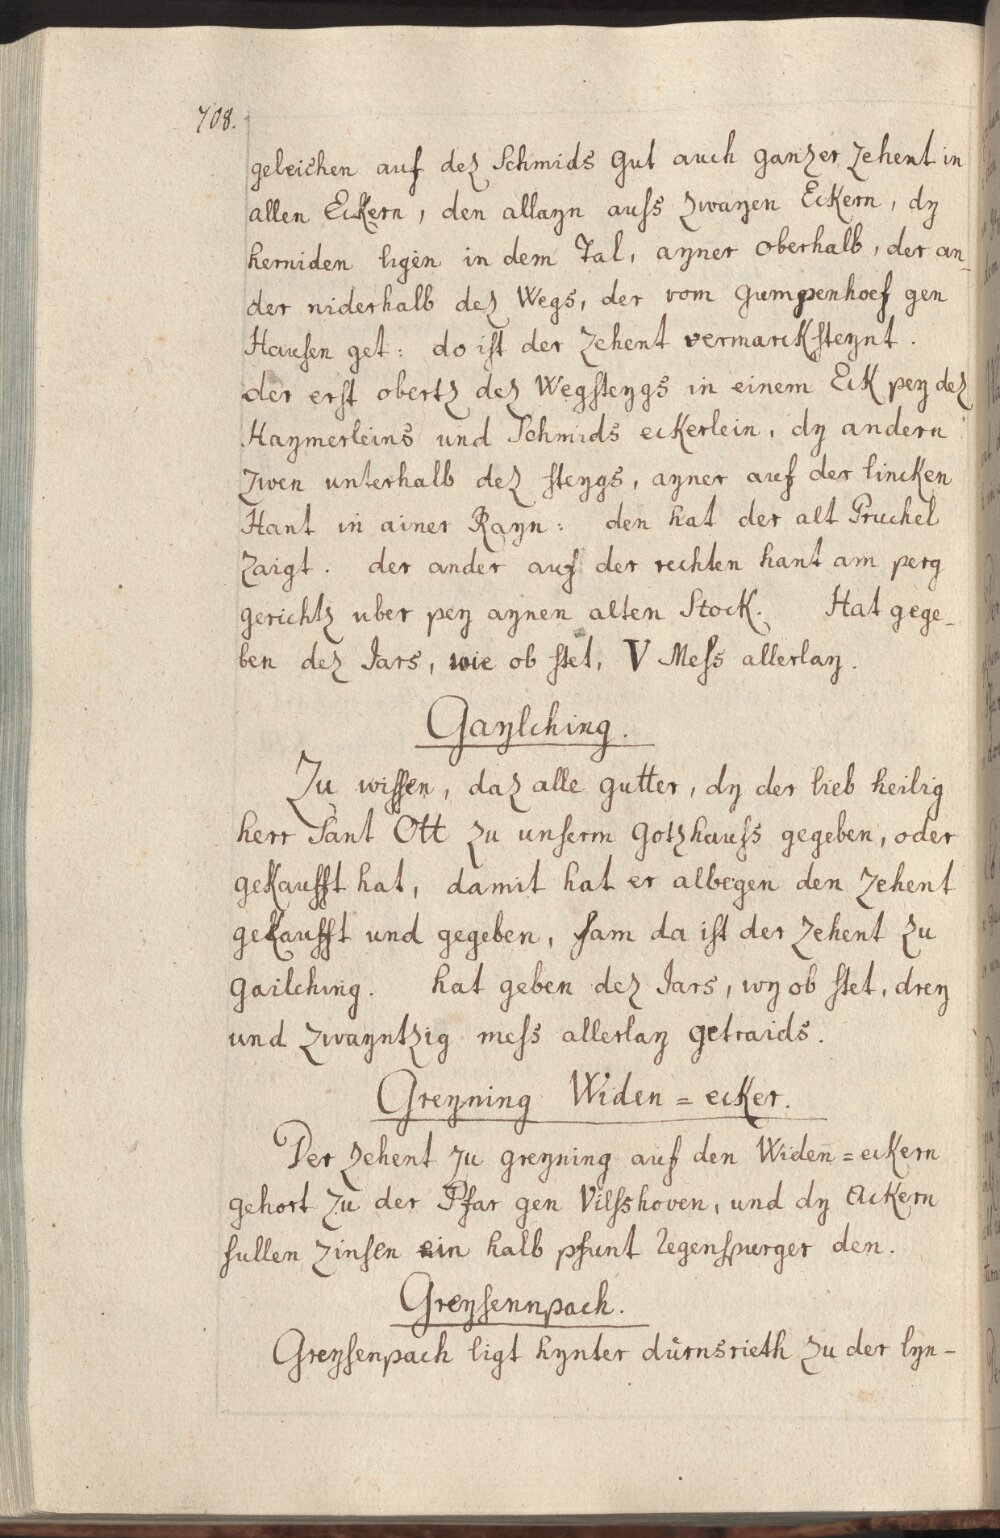 708.
geleichen auf dez Schmids Gut auch ganzer Zehent in
allen Eckern, den allayn auss zwayen Eckern, dy
herniden ligen in dem Tal, ayner oberhalb, der an-
der niderhalb dez Wegs, der vom Gumpenhoef gen
Hausen get: do ist der Zehent vermarcksteynt.
der erst obertz dez Wegsteygs in einem Eck pey dez
Haymerleins und Schmids eckerlein, dy andern
zwen unterhalb dez steygs, ayner auf der lincken
Hant in ainer Rayn: den hat der alt Pruchel
zaigt. der ander auf der rechten hant am perg
gerichtz uber pey aynen alten Stock. Hat gege-
ben dez Iars, wie ob stet, V Mess allerlay.
Gaylching.
Zu wissen, daz alle gutter, dy der lieb heilig
herr Sant Ott zu unserm Gotzhauss gegeben, oder
gekaufft hat, damit hat er albegen den Zehent
gekaufft und gegeben, sam da ist der Zehent zu
Gailching. hat geben dez Iars, wy ob stet, drey
und zwayntzig mess allerlay getraids.
Greyning Widen=ecker.
Der Zehent zu greyning auf den Widen=eckern
gehort zu der Pfar gen Vilsshoven, und dy Ackern
sullen zinsen ein halb pfunt Regenspurger den.
Greysennpach.
Greysenpach ligt hynter dürnsrieth zu der lyn-